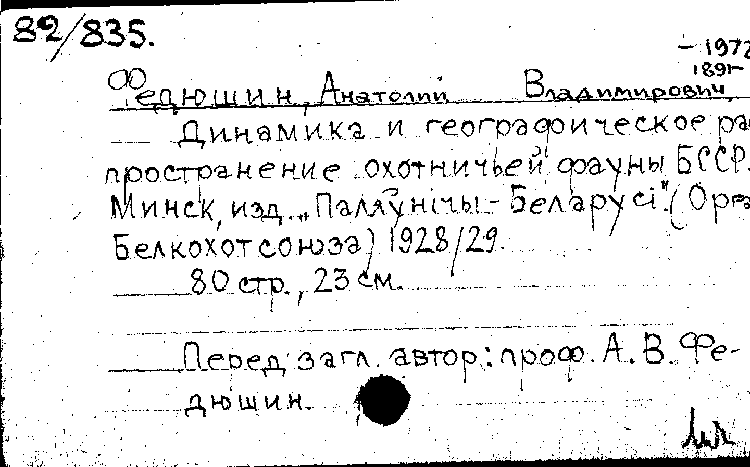 82/835.
– 1972
1891–
Федюшин, Анатолий Владимирович
Динамика и географическое рас
пространение охотничьей фауны БССР.
Минск, изд. „Паляўнічы – Беларусі". (Орга
Белкохотсоюза) 1928/29.
80 стр., 23 см.
Перед загл. автор: проф. А. В. Фе-
дюшин.